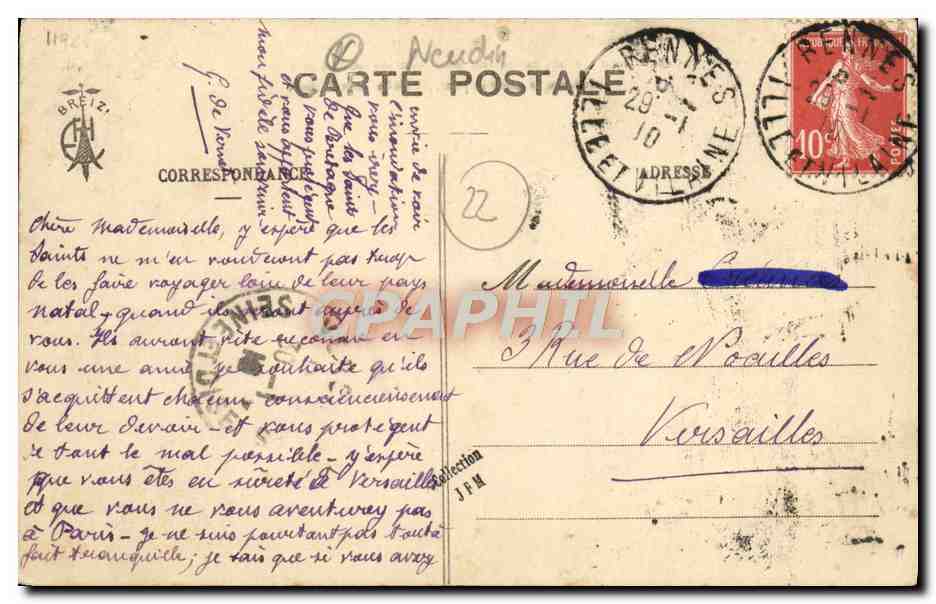 1192
Neudin
CARTE POSTALE
BREIZ
CORRESPONDANCE
ADRESSE
RENNES
29 -1
10
ILLE ET VILAINE
RENNES
ILLE ET VILAINE
10c
POSTES
22
Chère Mademoiselle, j'espère que les
Saints ne m'en voudront pas trop
de les faire voyager loin de leur pays
natal, quand ils seront auprès de
vous. Ils auront vite reconnu en
vous une amie, je souhaite qu'ils
s'acquittent chacun consciencieusement
de leur devoir - et vous protègent
de tout le mal possible - j'espère
que vous êtes en sûreté à Versailles
et que vous ne vous aventurez pas
à Paris - je ne suis pourtant pas tout à
fait tranquille; je sais que si vous avez
envie de voir
l'inondation
vous irez -
Que les Saints
de Bretagne
vous préservent
et vous apportent
mon fidèle souvenir
G. de
Mademoiselle
3 Rue de Noailles
Versailles
SEINE ET OISE
Collection
JFM
CPAPHIL